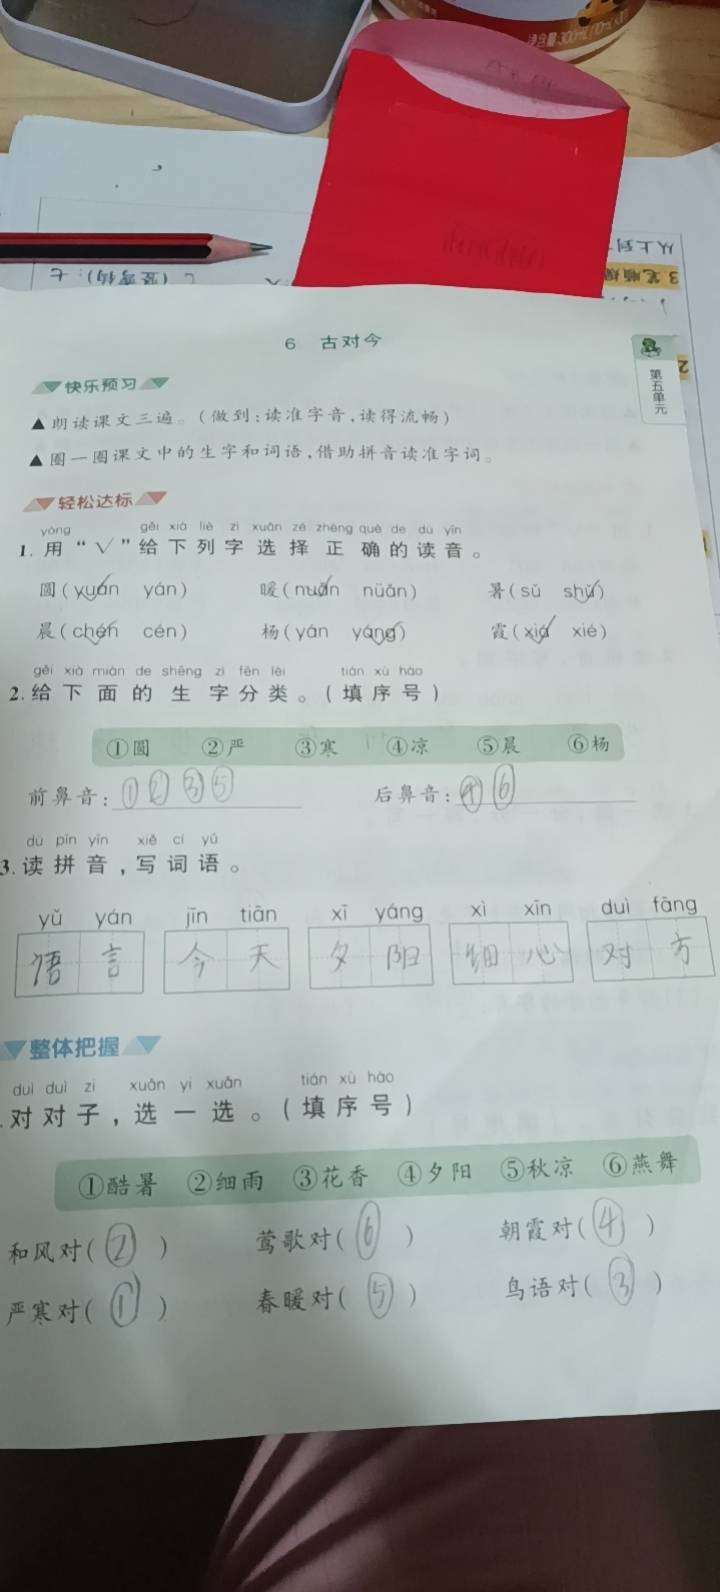 净含量:300mL(10mL×
从上到
3.笔顺
七:(竖弯钩)乚
6 古对今
第五单元
快乐预习
▲朗读课文三遍。(做到:读准字音,读得流畅)
▲圈一圈课文中的生字和词语,借助拼音读准字词。
轻松达标
yòng gěi xià liè zì xuǎn zé zhèng què de dú yīn
1.用“√”给下列字选择正确的读音。
圆(yuán yán) 暖(nuǎn nüǎn) 暑(sǔ shǔ)
晨(chén cén) 杨(yán yáng) 霞(xiá xié)
gěi xià miàn de shēng zì fēn lèi tián xù hào
2.给下面的生字分类。(填序号)
①圆 ②严 ③寒 ④凉 ⑤晨 ⑥杨
前鼻音:①②③⑤ 后鼻音:④⑥
dú pīn yīn xiě cí yǔ
3.读拼音,写词语。
yǔ yán jīn tiān xī yáng xì xīn duì fāng
语言 今天 夕阳 细心 对方
整体把握
duì duì zi xuǎn yi xuǎn tián xù hào
对对子,选一选。(填序号)
①酷暑 ②细雨 ③花香 ④夕阳 ⑤秋凉 ⑥燕舞
和风对(②) 莺歌对(⑥) 朝霞对(④)
严寒对(①) 春暖对(⑤) 鸟语对(③)